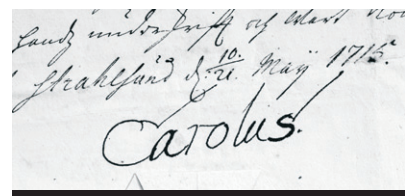 handz underskrifft och wart
Strahlsund d. 10/21. Maÿ 1715.
Carolus.